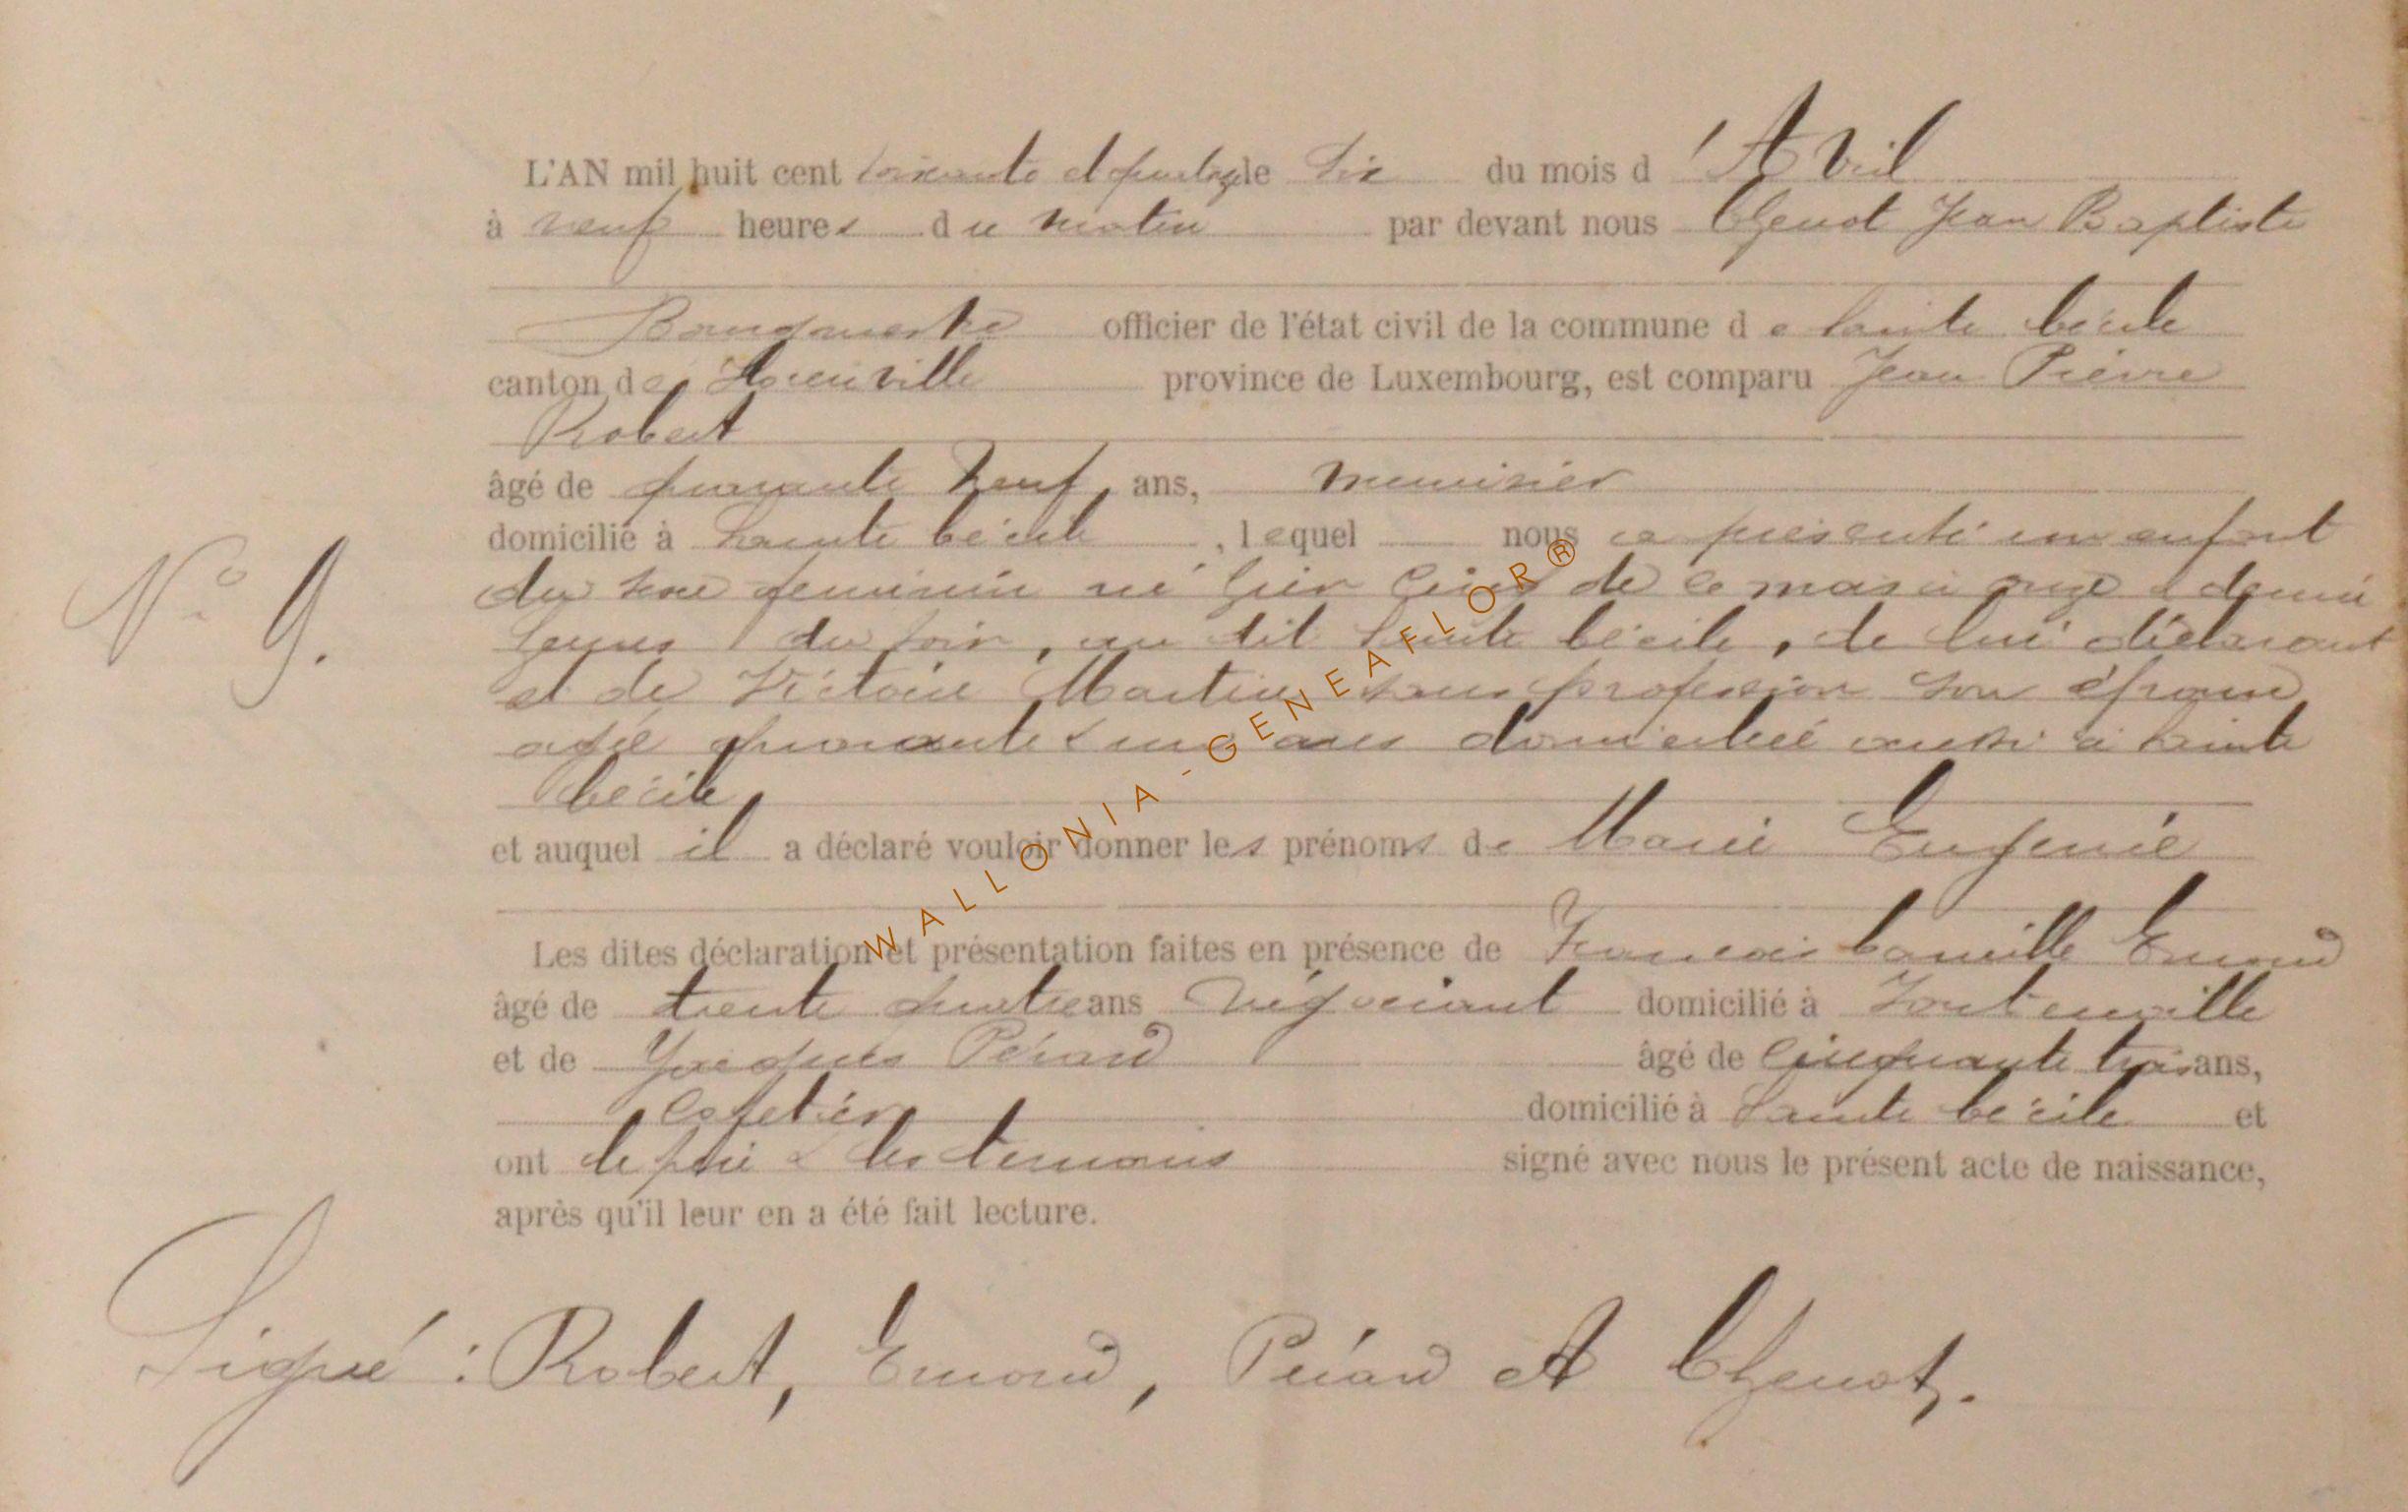 L'AN mil huit cent soixante et quatorze le Six du mois d 'Avril
à neuf heures du matin par devant nous Chenot Jean Baptiste
Bourgmestre officier de l'état civil de la commune de Sainte Cécile
canton de Florenville province de Luxembourg, est comparu Jean Pierre
Robert
âgé de quarante neuf ans, menuisier
domicilié à Sainte Cécile, lequel nous a présenté un enfant
N° 9.
du sexe feminin né hier cinq de ce mois à onze & demie
heures du soir, au dit Sainte Cécile, de lui déclarant
et de Victoire Martin sans profession son épouse
agée quarante & un ans domiciliée aussi à Sainte
Cécile
et auquel il a déclaré vouloir donner les prénoms de Marie Eugenie
Les dites déclaration et présentation faites en présence de Francois Camille Emond
âgé de trente quatre ans négociant domicilié à Fontenoille
et de Jacques Pérard âgé de cinquante trois ans,
Cafetier domicilié à Sainte Cécile et
ont le père & les temoins signé avec nous le présent acte de naissance,
après qu'il leur en a été fait lecture.
Signé : Robert, Emond, Pérard et Chenot.
WALLONIA-GENEAFLOR®